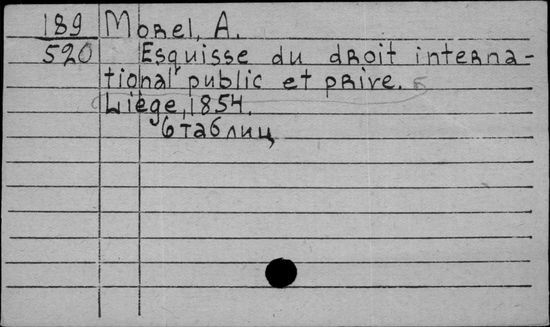 189 Morel, A.
520 Esquisse du droit interna-
tional public et prive.
Liège, 1854.
6 таблиц